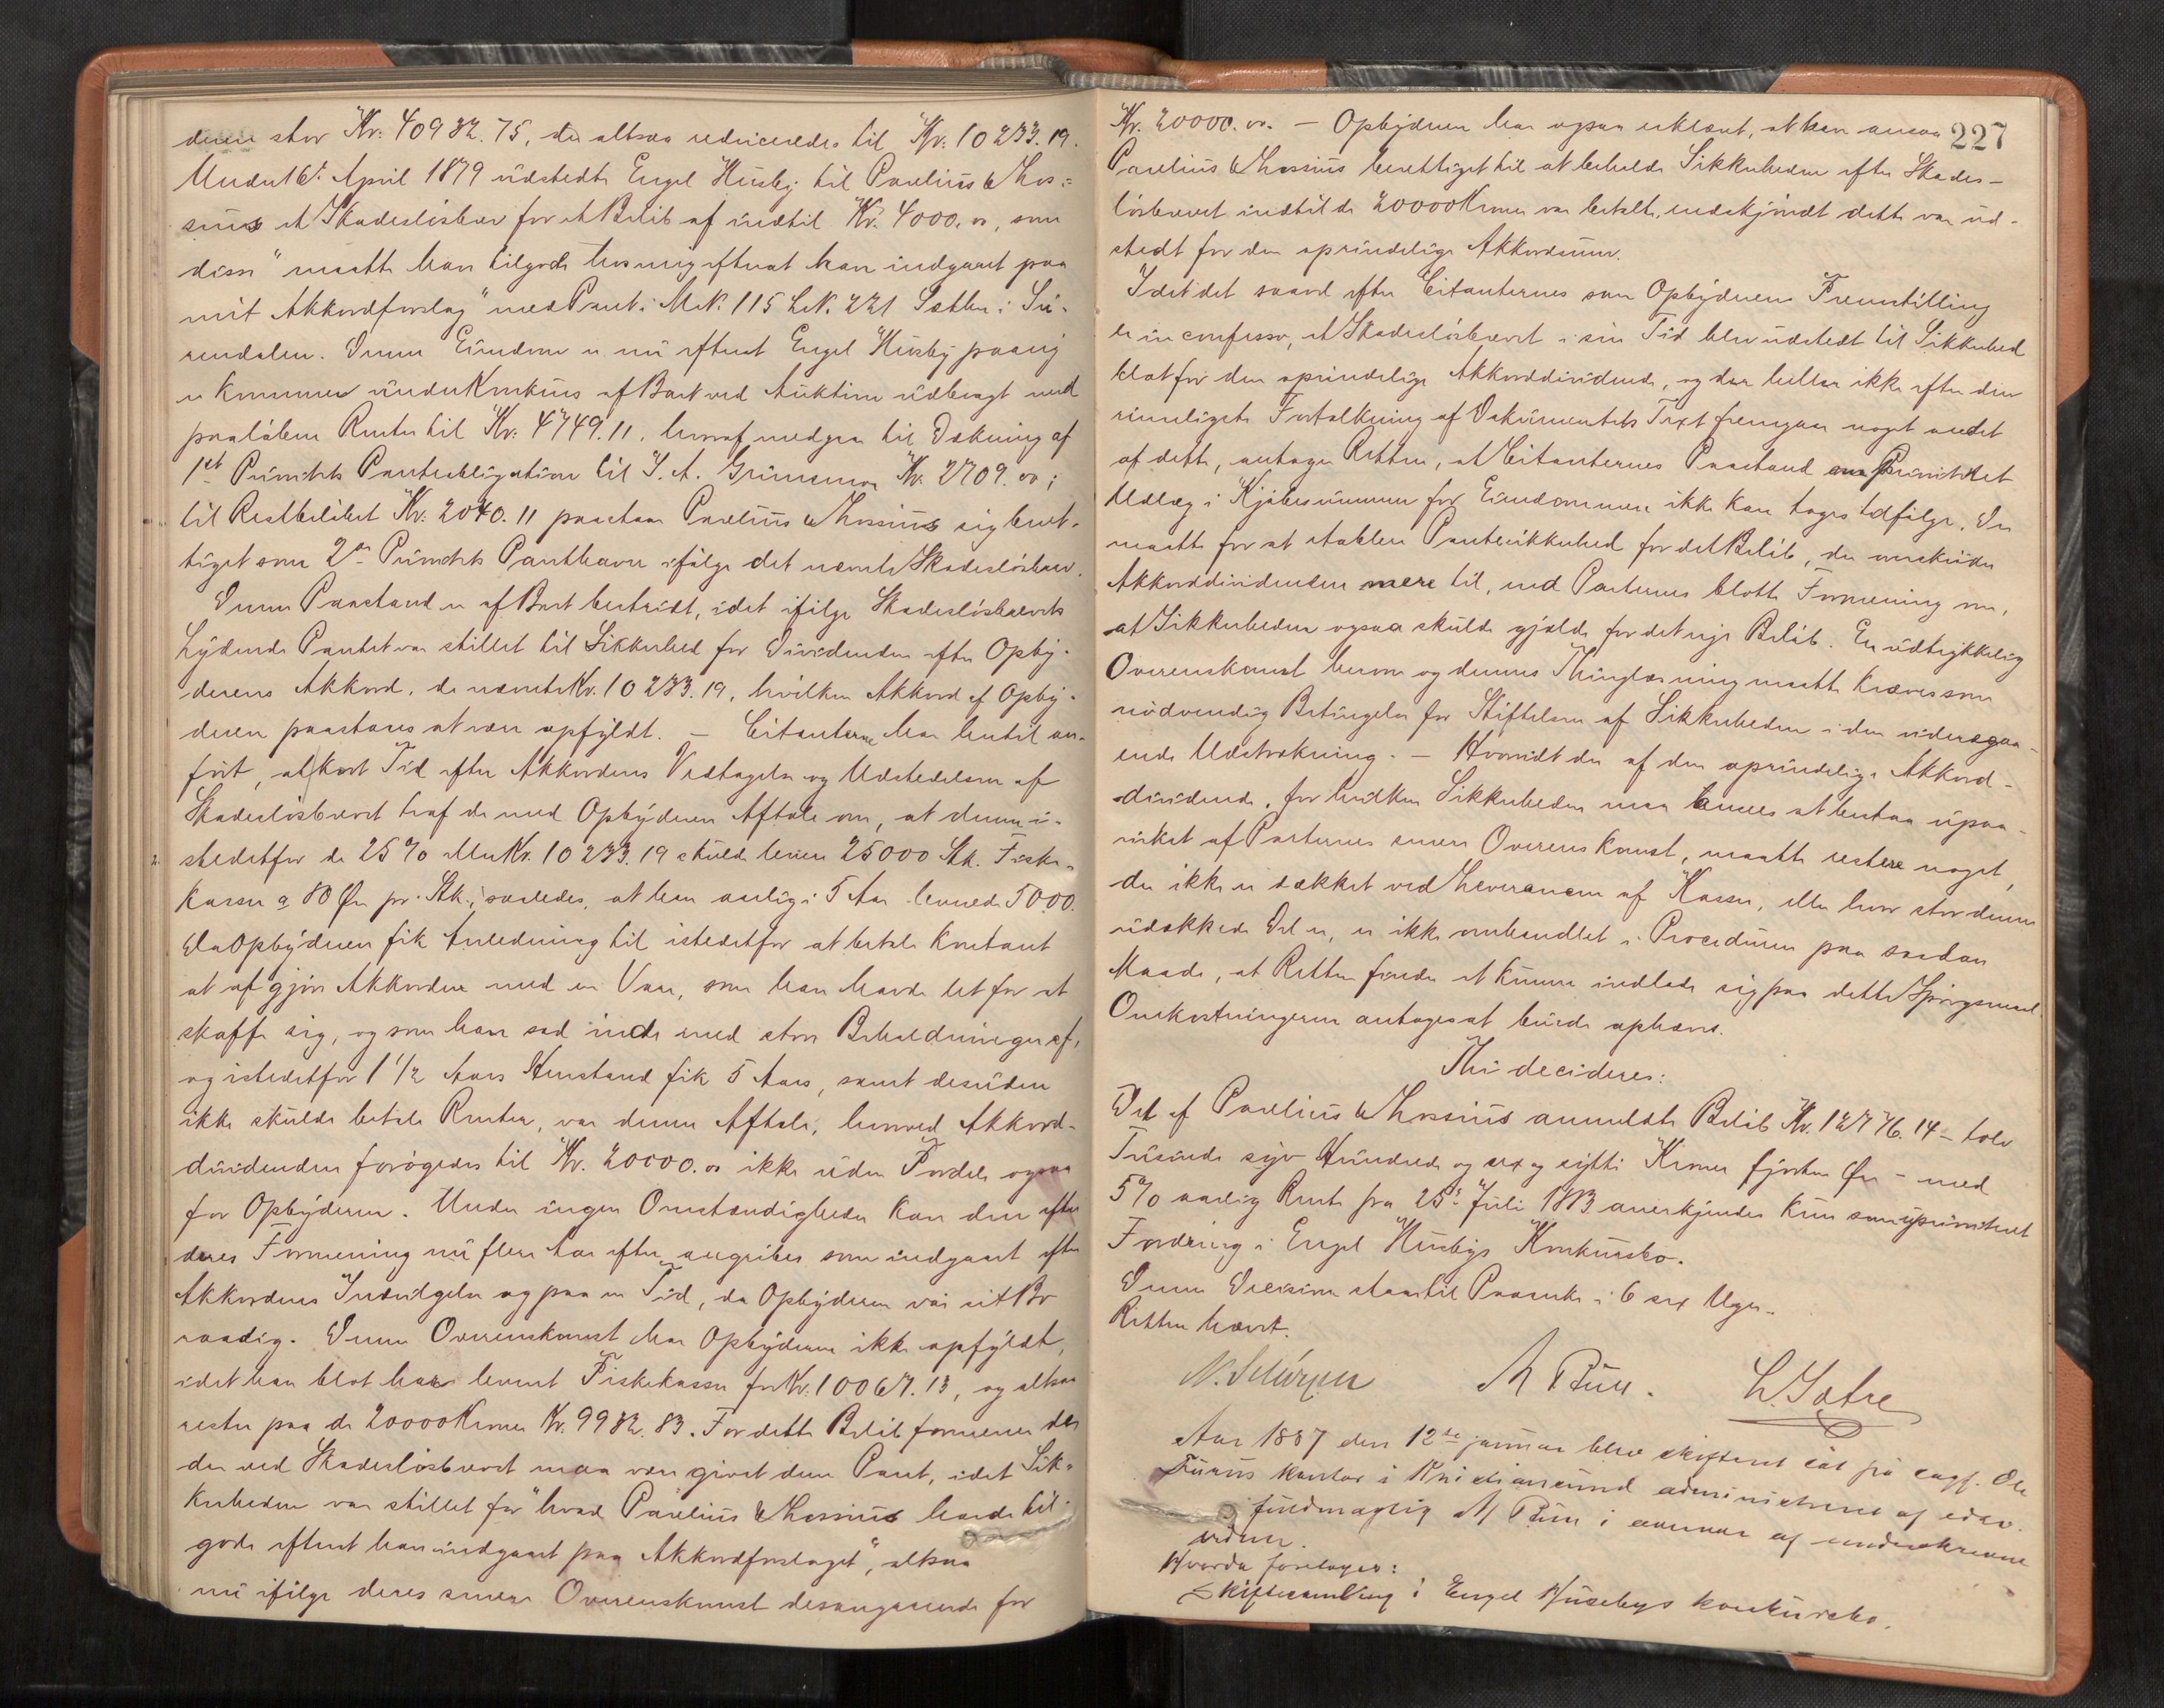 denes stor Kr. 40932.75, der altsaa reduceredes til Kr. 10233.19.
Under 16. April 1879 udstedte Engel Husby til Parelius & Los=
sius et Skadesløsbrev for et Beløb af indtil Kr. 4000.00, som
disse "maatte have tilgode hos mig efterat have indgaaet paa
mit Akkordforslag" med Pant i M.N. 115 L.N. 221 Sætter i Su-
rendalen. Denne Eiendom er nu efterat Engel Husby paany
er kommen under Konkurs af Boet ved Auktion udbragt med
paaløbne Renter til Kr. 4749.11, hvoraf medgaar til Dækning af
1st Prioritets Panteobligation til I. A. Grimsmo Kr. 2709.00;
til Restbeløbet Kr. 2040.11 paastaar Parelius & Lossius sig beret-
tiget som 2den Prioritets Panthavere ifølge det nævnte Skadesløsbrev.
Denne Paastand er af Boet bestridt, idet ifølge Skadesløsbrevets
Lydende Pantet var stillet til Sikkerhed for Dividenden efter Opby-
derens Akkord, de nævnte Kr. 10233.19, hvilken Akkord af Opby-
deren paastaaes at være opfyldt. — Citanterne har hertil an-
ført, at kort Tid efter Akkordens Vedtagelse og Udstedelsen af
Skadesløsbrevet traf de med Opbyderen Aftale om, at denne i-
stedetfor de 25% eller Kr. 10233.19 skulde levere 25000 Stk. Fiske-
kasser a 80 Øre pr. Stk., saaledes, at han aarlig i 5 Aar leverede 5000.
Da Opbyderen fik Anledning til istedetfor at betale kontant
at afgjøre Akkorden med en Vare, som han havde let for at
skaffe sig, og som han sad inde med store Beholdninger af,
og istedetfor 1 1/2 Aars Henstand fik 5 Aars, samt desuden
ikke skulde betale Renter, var denne Aftale, hvorved Akkord-
dividenden forøgedes til Kr. 20000.00 ikke uden Fordele ogsaa
for Opbyderen. Under ingen Omstændigheder kan den efter
deres Formening nu flere Aar efter angribes som indgaaet efter
Akkordens Indvilgelse og paa en Tid, da Opbyderen var sit Bo
raadig. Denne Overenskomst har Opbyderen ikke opfyldt,
idet han blot har leveret Fiskekasser for Kr. 10067.13, og altsaa
rester paa de 20000 Kroner Kr. 9932.83. For dette Beløb formener de
der ved Skadesløsbrevet maa være givet dem Pant, idet Sik-
kerheden var stillet for "hvad Parelius & Lossius havde til-
gode efterat have indgaaet paa Akkordforslaget", altsaa
nu ifølge deres senere Overenskomst desangaaende for
227
Kr. 20000.00. — Opbyderen har ogsaa erklæret, at han ansaa
Parelius & Lossius berettiget til at beholde Sikkerheden efter Skades-
løsbrevet indtil de 20000 Kroner var betalt, endskjøndt dette var ud-
stedt for den oprindelige Akkordsum.
Idet det saavel efter Citanternes som Opbyderens Fremstilling
er in confesso, at Skadesløsbrevet i sin Tid blev udstedt til Sikkerhed
blot for den oprindelige Akkorddividende, og der heller ikke efter den
rimeligste Fortolkning af Dokumentets Text fremgaar noget andet
af dette, antager Retten, at Citanternes Paastand om Prioritet
Udlæg i Kjøbesummen for Eiendommen ikke kan tages tilfølge. Der
maatte for at etablere Pantesikkerhed for det Beløb, der overskrider
Akkorddividenden mere til, end Parternes blotte Formening om,
at Sikkerheden ogsaa skulde gjælde for det nye Beløb. En udtrykkelig
Overenskomst herom og dennes Thinglæsning maatte kræves som
nødvendig Betingelse for Stiftelsen af Sikkerheden i den videregaa-
ende Udstrækning. — Hvorvidt der af den oprindelige Akkord-
dividende, for hvilken Sikkerheden maa ansees at bestaa upaa-
virket af Parternes senere Overenskomst, maatte restere noget,
der ikke er dækket ved Leverancen af Kasser, eller hvor stor denne
udækkede Del er, er ikke omhandlet i Proceduren paa saadan
Maade, at Retten finder at kunne indlade sig paa dette Spørgsmaal.
Omkostningerne antages at burde ophæves.
Thi decideres:
Det af Parelius & Lossius anmeldte Beløb Kr. 12776.14 — tolv
Tusinde syv Hundrede og sex og sytti Kroner fjorten Øre — med
5% aarlig Rente fra 25. Juli 1883 anerkjendes kun som uprioriteret
Fordring i Engel Husbys Konkursbo.
Denne Decision staar til Paaanke i 6 sex Uger.
Retten hævet.
M Buu. L. Sætre
Aar 1887 den 12te januar blev skifteret sat på sagf. Ole
Furus kontor i Kristiansund administreret af edsv.
fuldmægtig M Buu i nærvær af underskrevne
vidner.
Hvorda foretoges:
Skiftesamling i Engel Husebys konkursbo.